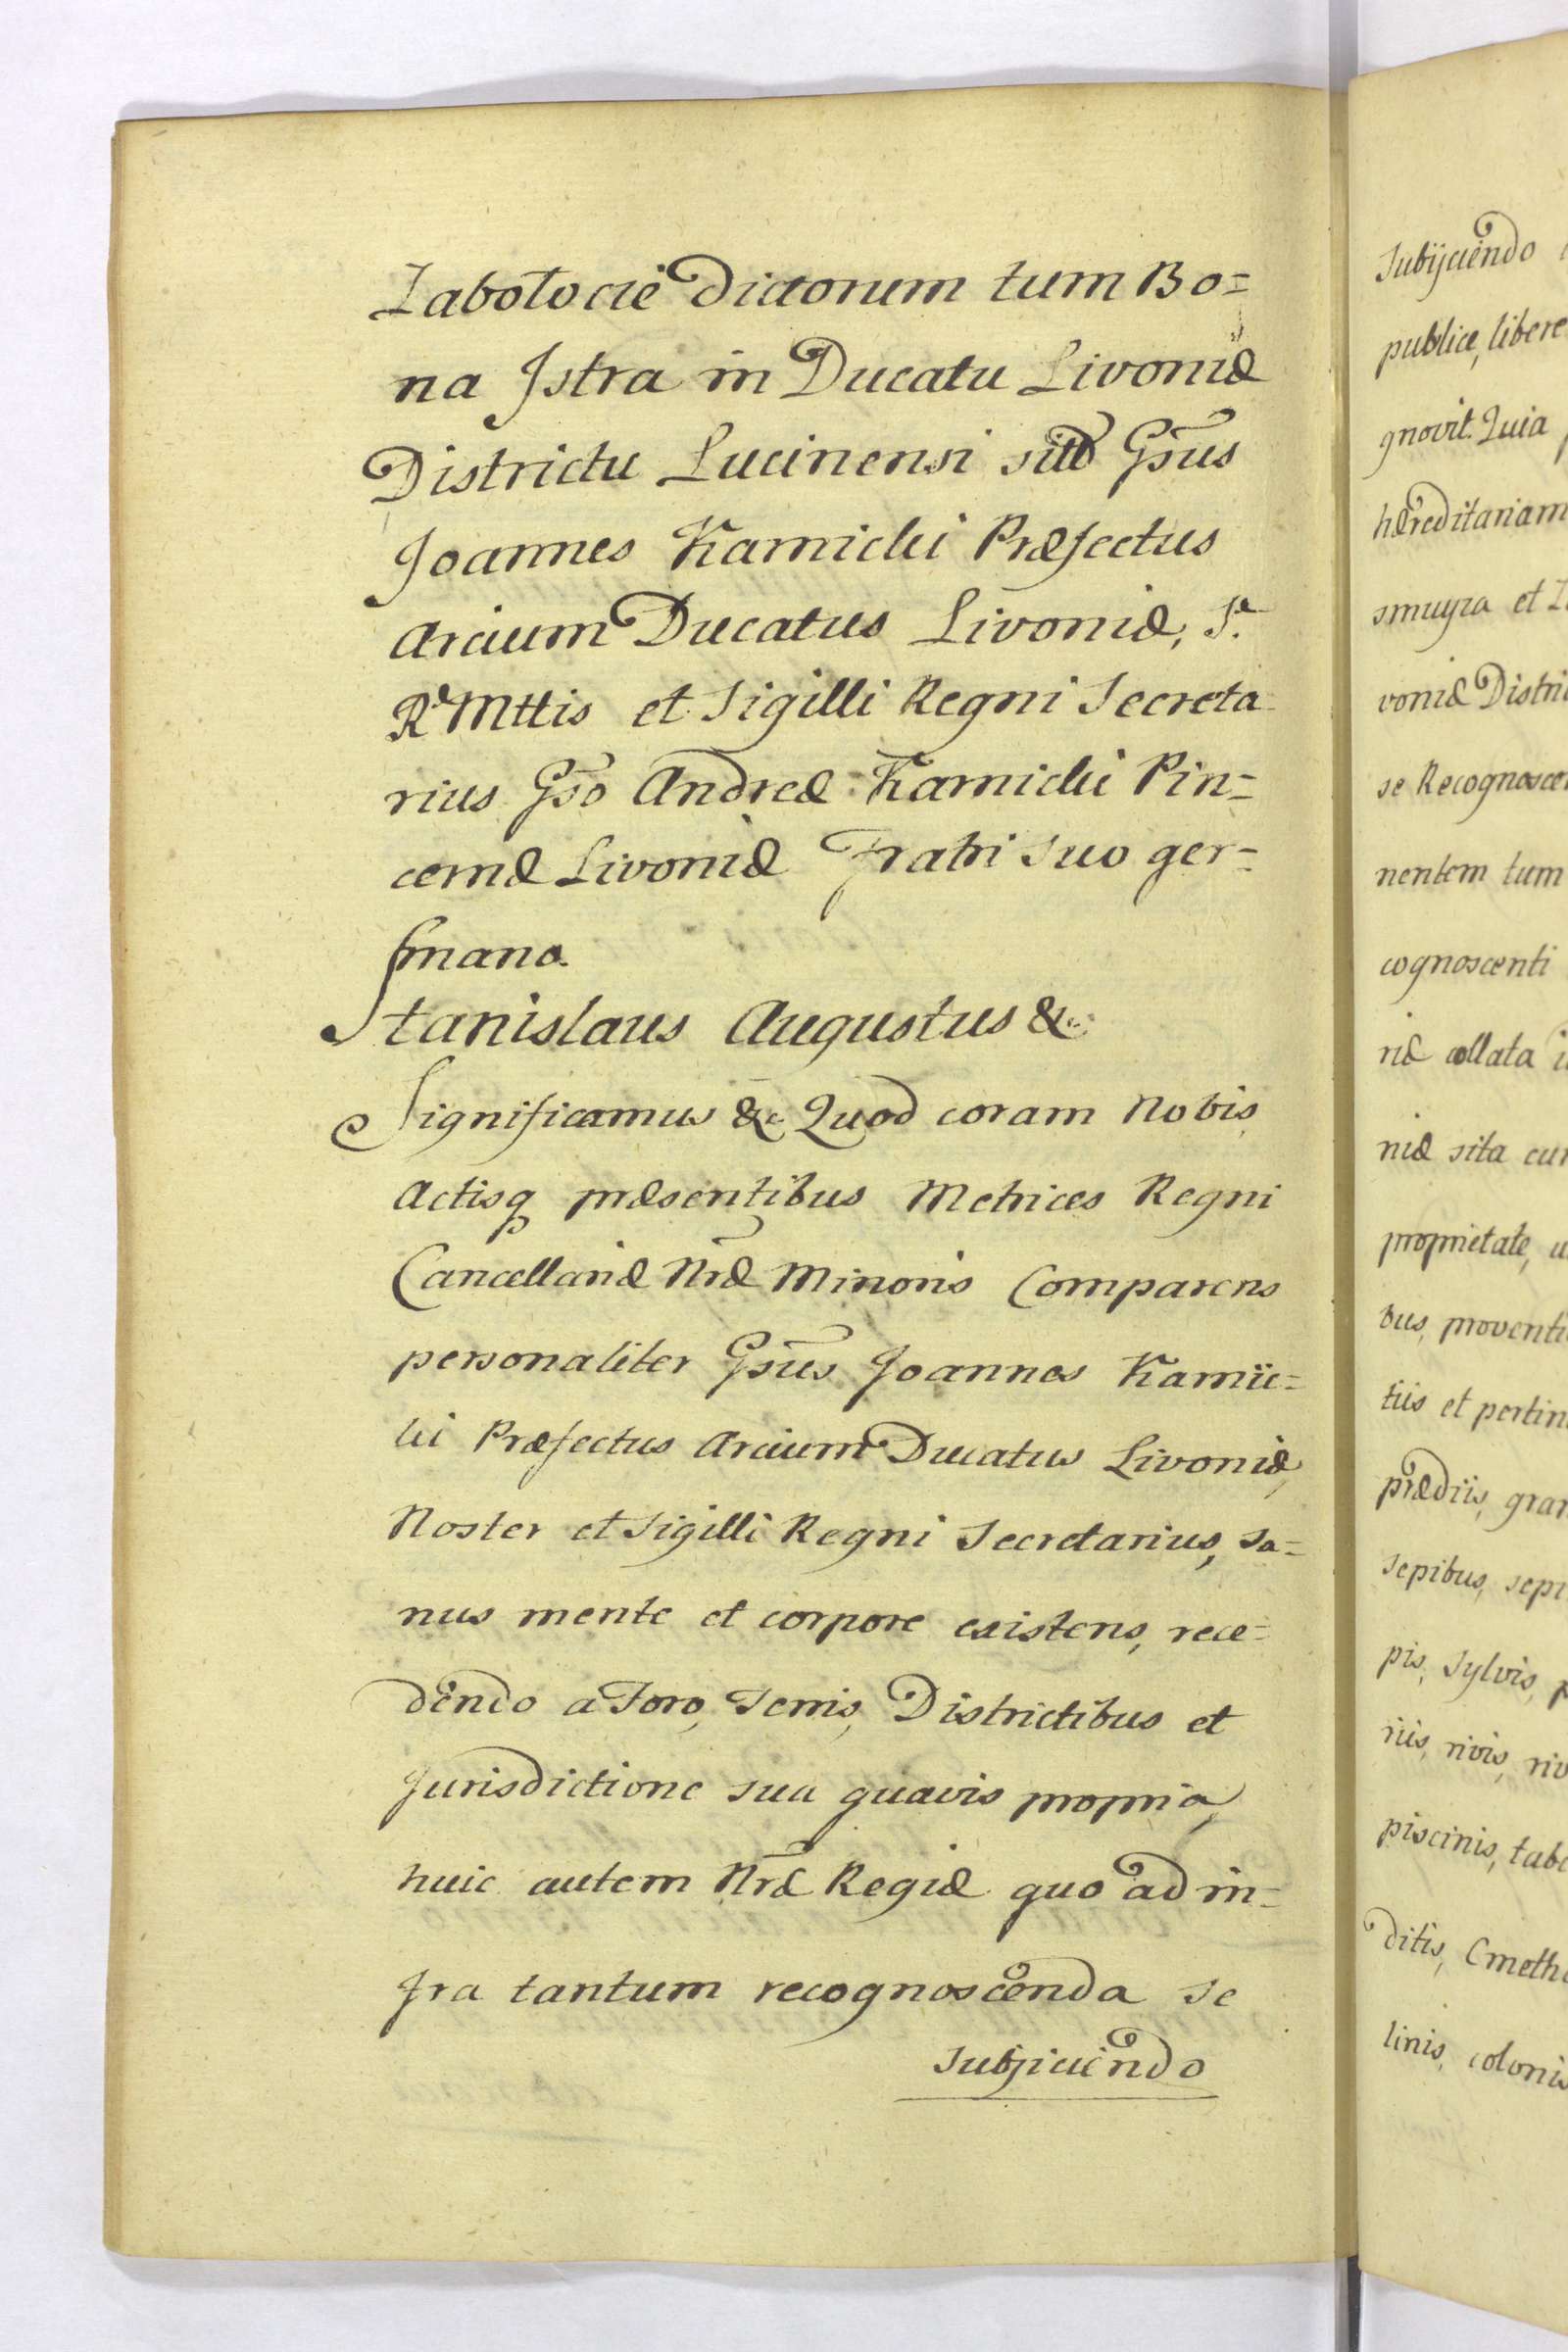 Zabołocie dictorum tum Bo=
na Istra in Ducatu Livoniæ
Districtu Lucinensi sita Gsus
Joannes Karnicki Præfectus
Arcium Ducatus Livoniæ, S.
R. Mttis et Sigilli Regni Secreta
rius Gso Andreæ Karnicki Pin=
cernæ Livoniæ Fratri suo ger=
mano.
Stanislaus Augustus &c.
Significamus &c. Quod coram Nobis
Actisq præsentibus Metrices Regni
Cancellariæ Nræ Minoris Comparens
personaliter Gsus Joannes Karnic=
ki Præfectus Arcium Ducatus Livoniæ,
Noster et Sigilli Regni Secretarius, sa=
nus mente et corpore existens, rece=
dendo a Foro, Terris, Districtibus et
Jurisdictione sua quavis propria,
huic autem Nræ Regiæ quo ad in=
fra tantum recognoscenda se
subjiciendo
subijciendo
publice, libere
gnovit. Quia
hæreditariam
smuyza et
voniæ Distri
se Recognosce
nentem tum
cognoscenti
riæ collata
niæ sita cu
proprietate,
bus, proventi
tiis et pertin
prædiis, gran
sepibus, sepi
pis, sylvis,
riis, rivis, riv
piscinis, tab
ditis, Cmeth
linis, coloni